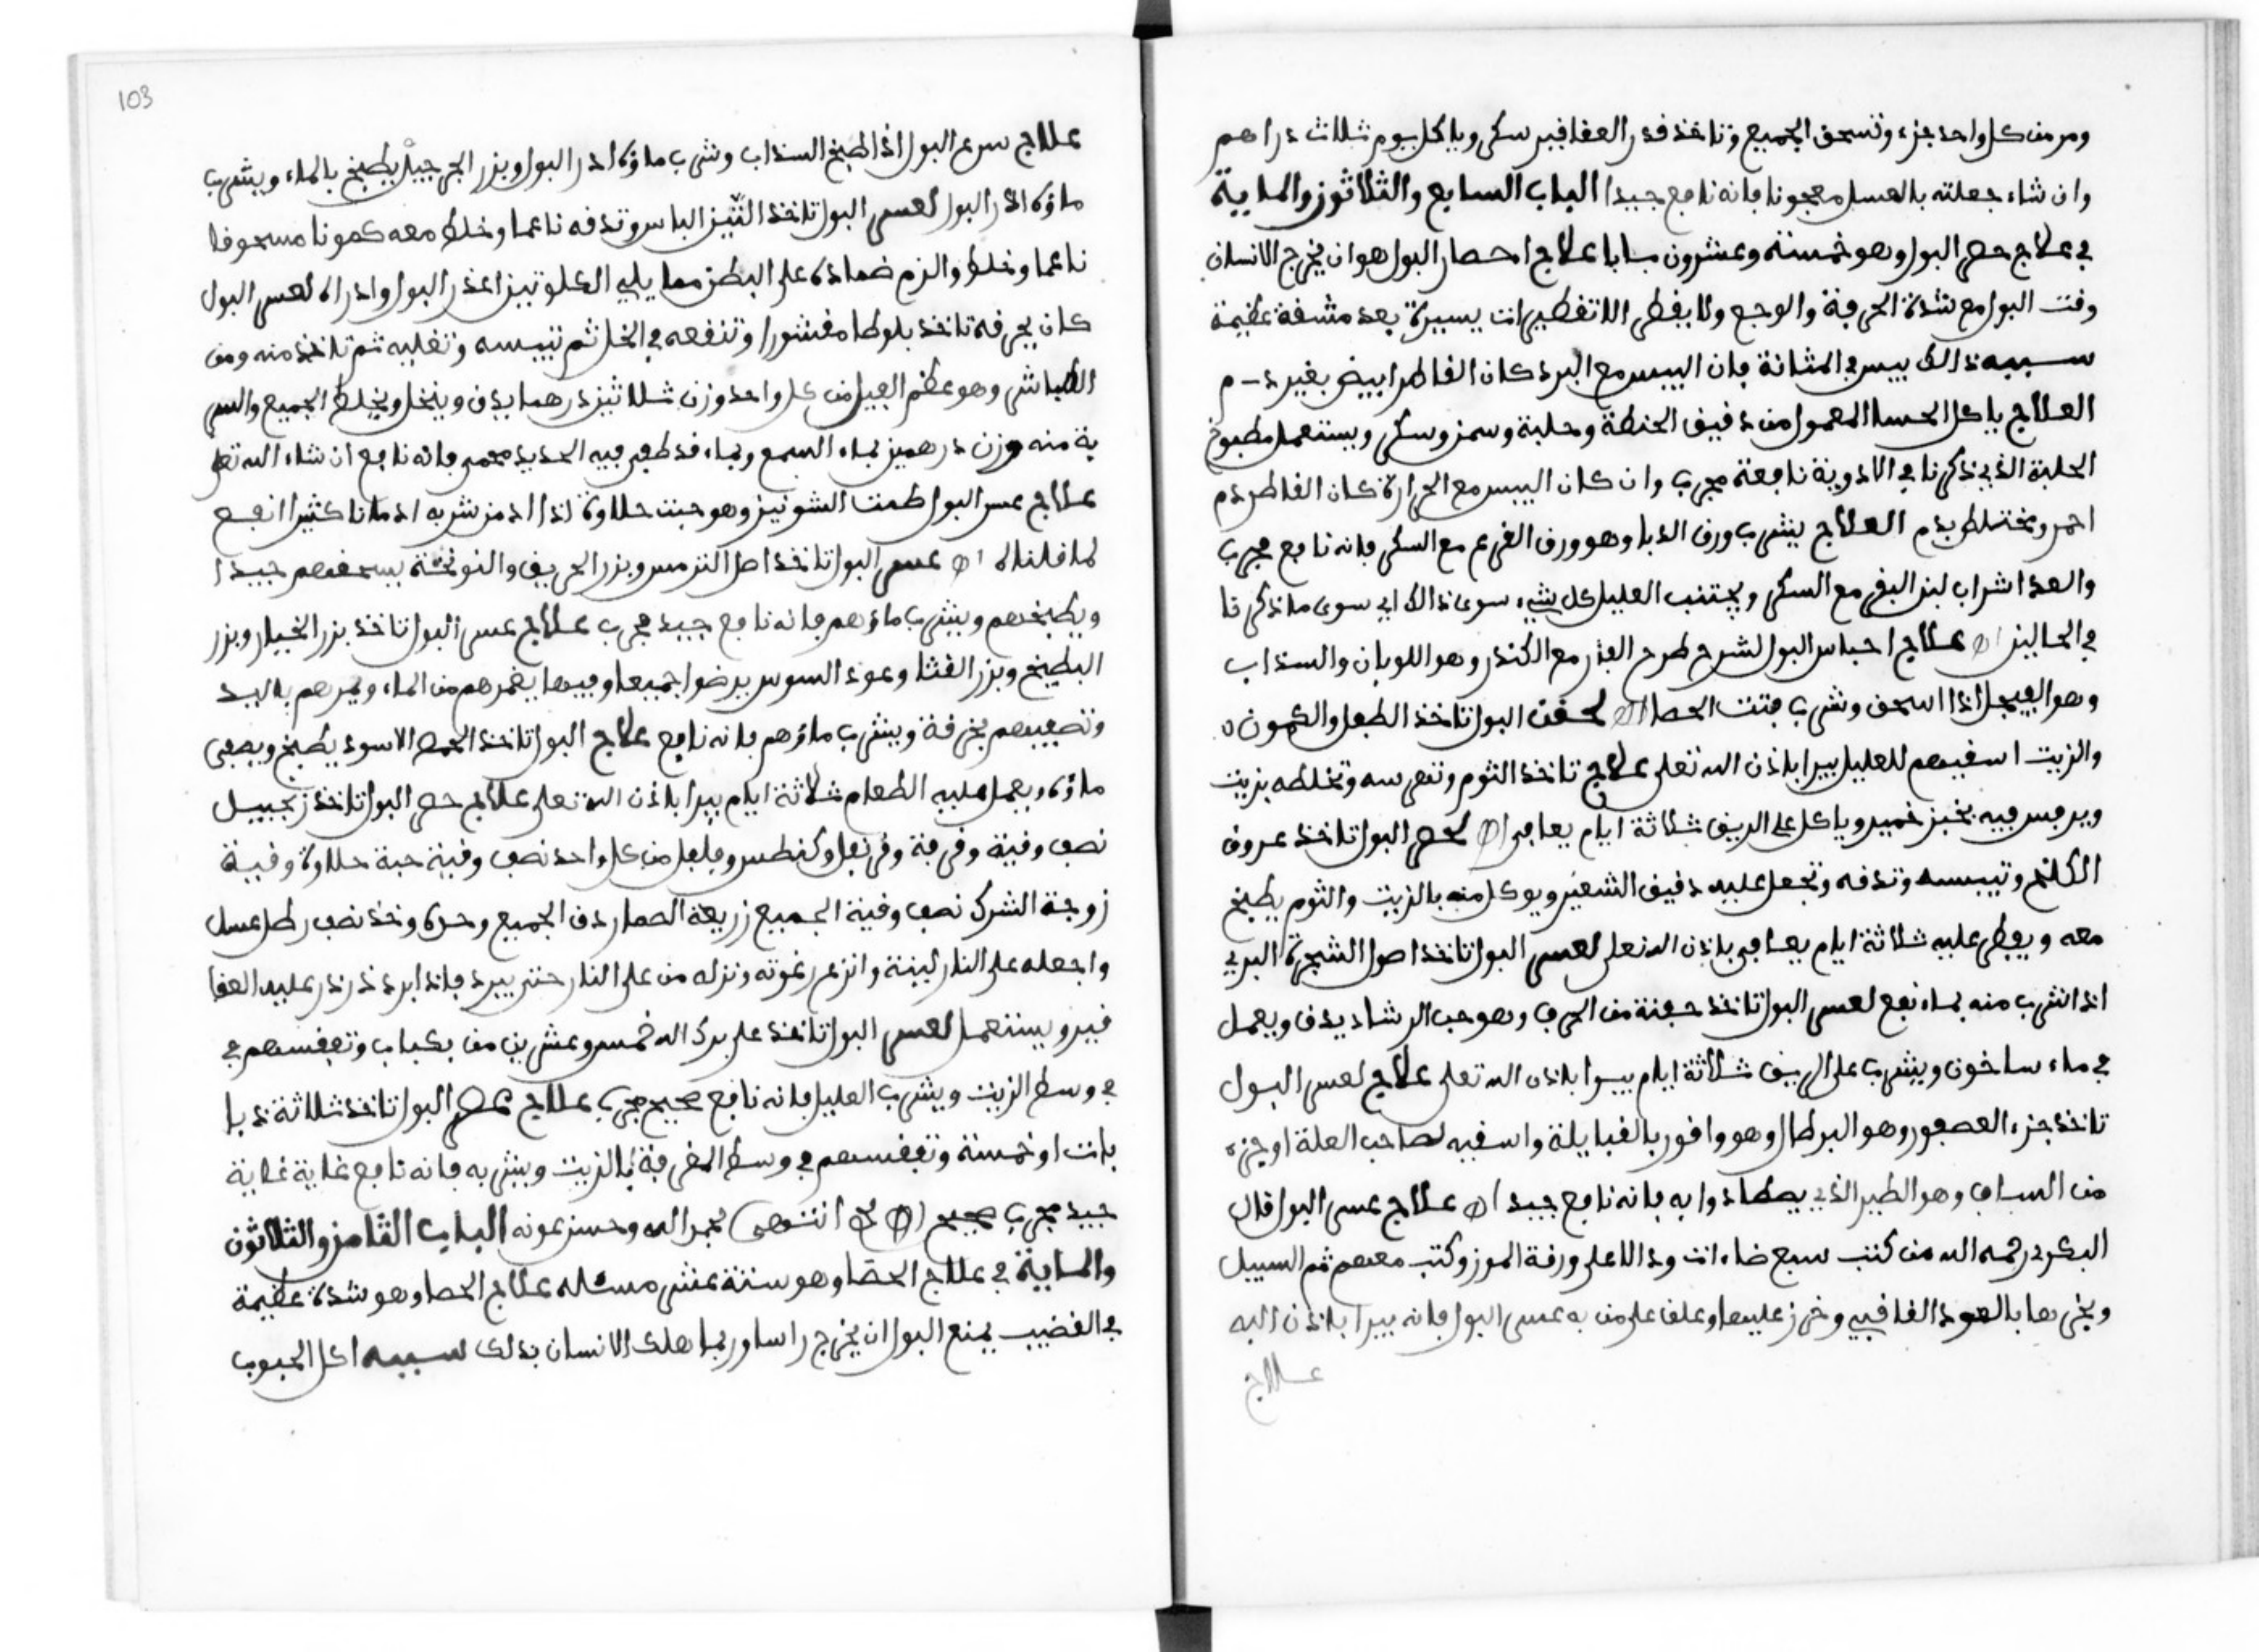 ومر من كل واحد جزء وتسحق الجميع وتاخذ قدر العقاقير سكر وياكل بيوم ثلاث دراهم
وان شاء جعلته بالعسل معجونا فانه نافع جيدا الباب السابع والثلاثون والماية
في علاج حصر البول وهو خمسة وعشرون بابا علاج احصار البول هو ان يخرج الانسان
وقت البول مع شدة الحرقة والوجع ولا يقطر الا تقطيرات يسيرة بعد مشقة عظيمة
سببه ذالك يبس في المثانة فان اليبس مع البرد كان القاطر ابيض بغير دم
العلاج ياكل الحسا المعمول من دقيق الحنطة وحلبة وسمن وسكر ويستعمل مطبوخ
الحلبة الذي ذكرنا في الادوية نافعة مجرب وان كان اليبس مع الحرارة كان القاطر دم
احمر ومختلط بدم العلاج يشرب ورق الدبا وهو ورق القرع مع السكر فانه نافع مجرب
والغذا شراب لبن البقر مع السكر ويجتنب العليل كل شيء سوى ذالك اي سوى ما ذكرنا
في الحالين اه علاج احباس البول لشرح طرح مع الكندر وهو اللوبان والسذاب
وهو الفيجل اذا اسحق وشرب فتت الحصا اه لحقن البول تاخذ الطفل والكمون
والزيت اسقيهم للعليل يبرا باذن الله تعلى علاج تاخذ الثوم وتهرسه وتخلطه بزيت
ويرفس فيه بخبز خمير وياكل على الريق ثلاثة ايام يعافى اه لحصر البول تاخذ عروق
الكلخ وتيبسه وتدقه وتجعل عليه دقيق الشعير ويوكل منه بالزيت والثوم يطبخ
معه ويفطر عليه ثلاثة ايام يعافى باذن الله تعلى لعسر البول تاخذ اصول الشجرة البري
اذا شرب منه بماء نفع لعسر البول تاخذ حفنة من الحرف وهو حب الرشاد يدق ويعمل
في ماء ساخون ويشرب على الريق ثلاثة ايام يبرا باذن الله تعلى علاج لعسر البول
تاخذ جزء العصفور وهو البرطال وهو وافور بالقبايلة واسقيه لصاحب العلة او جزء
من وهو الطير الذي يصطاد وا به فانه نافع جيد اه علاج عسر البول قال
البكري رحمه الله من كتب سبع ضاءات ودالا على ورقة الموز وكتب معهم ثم السبيل
ويخرها بالعود القاقيي وخرز عليها وعلق على من به عسر البول فانه يبرا باذن الله
علاج
103
علاج سرع البول اذا طبخ السذاب وشرب ماؤه ادر البول وبزر الجرجير يطبخ بالماء ويشرب
ماؤه ادر البول لعسر البول تاخذ التين اليابس وتدقه ناعما وخلط معه كمونا مسحوقا
ناعما وخلط والزم ضماده على البطن مما يلي الكلوتين اغذر البول وادراه لعسر البول
كان بحرقة تاخذ بلوطا مقشورا وتنقعه في الخل ثم تيبسه وتقليه ثم تاخذ منه ومن
الطباشر وهو عظم الفيل من كل واحد وزن ثلاثين درهما يدق وينخل ويخلط الجميع والسر
بة منه وزن درهمين بماء السمع وبماء قد طفي فيه الحديد محمى فانه نافع ان شاء الله تعلى
علاج عسر البول طحنت الشونيز وهو حبت حلاوة اذا ادمن شربه ادمانا كثيرا انفع
لما قلناه اه عسر البول تاخذ اصل الترمس وبزر الحريق والنوخة يسحقهم جيدا
ويطبخهم ويشرب ماؤهم فانه نافع جيد مجرب علاج عسر البول تاخذ بزر الخيار وبزر
البطيخ وبزر القثا وعود السوس يرضوا جميعا وفيما يغمرهم من الماء ويمرهم باليد
وتصفيهم بخرقة ويشرب ماؤهم فانه نافع علاج البول تاخذ الحمص الاسود يطبخ ويصفى
ماؤه ويعمل عليه الطعام ثلاثة ايام يبرا باذن الله تعلى علاج حصر البول تاخذ زنجبيل
نصف وقية وقرفة وقرنفل وكنطس وفلفل من كل واحد نصف وقية حبة حلاوة وقية
زوجة الشرك نصف وقية الجميع زريعة الصمار دق الجميع وحره وخذ نصف رطل عسل
واجعله على النار لينة وانزع رغوته ونزله من على النار حتى يبرد فاذا ابرد ذرذر عليه العقا
قير ويستعمل لعسر البول تاخذ على بركة الله خمس وعشرين من وتفقسهم في
في وسط الزيت ويشرب العليل فانه نافع صحيح مجرب علاج حصر البول تاخذ ثلاثة ذبا
بات او خمسة وتفقسهم في وسط المغرفة بالزيت ويشربه فانه نافع غاية غاية
جيد مجرب صحيح اه صح انتهى بحمد الله وحسن عونه الباب الثامن والثلاثون
والماية في علاج الحصا وهو ستة عشر مسئله علاج الحصا وهو شدة عظيمة
في القضيب يمنع البول ان يخرج راسا وربما هلك الانسان بذلك سببه اكل الحبوب